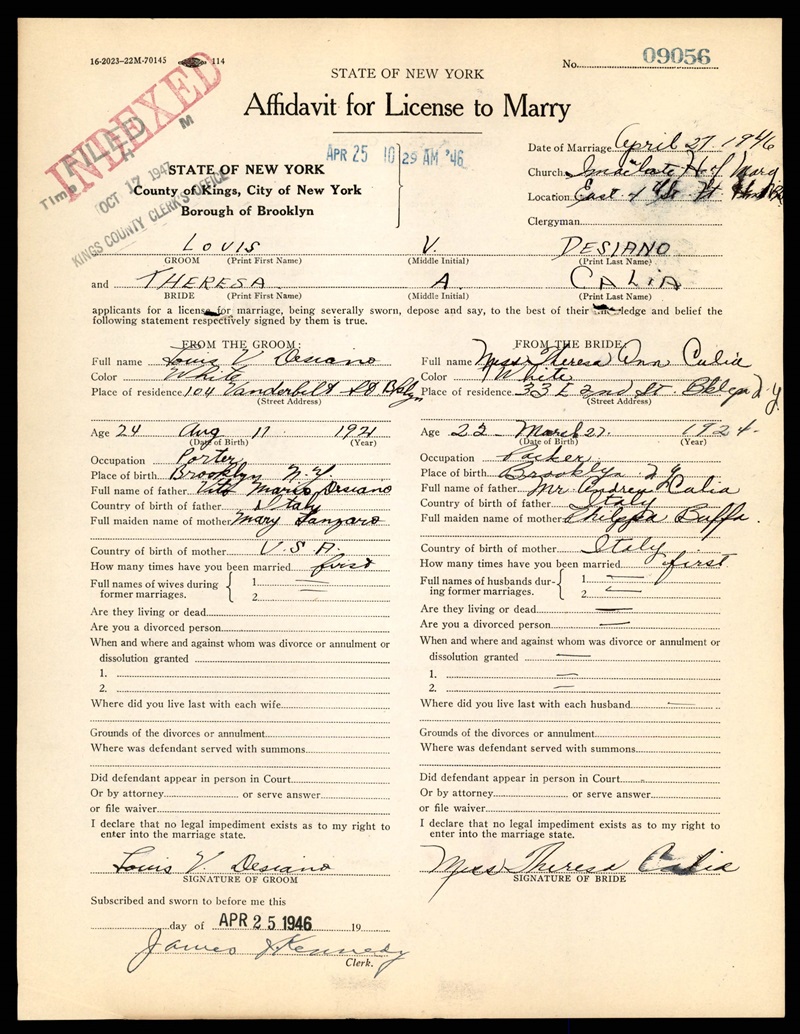 16-2023-22M-70145 114
No. 09056
STATE OF NEW YORK
Affidavit for License to Marry
INDEXED
FILED
Time A M
OCT 17 1947
KINGS COUNTY CLERK'S OFFICE
APR 25 10 29 AM '46
STATE OF NEW YORK
County of Kings, City of New York
Borough of Brooklyn
Date of Marriage April 27, 1946
Church Imaclate H of Mary
Location East 4 St. Ft
Clergyman
LOUIS V. DESIANO
GROOM (Print First Name) (Middle Initial) (Print Last Name)
and THERESA A. CALIA
BRIDE (Print First Name) (Middle Initial) (Print Last Name)
applicants for a license for marriage, being severally sworn, depose and say, to the best of their knowledge and belief the
following statement respectively signed by them is true.
FROM THE GROOM:
Full name Louis V Desiano
Color White
Place of residence 104 Vanderbilt St Bklyn
(Street Address)
Age 24 Aug 11 1921
(Date of Birth) (Year)
Occupation Porter
Place of birth Brooklyn N.Y.
Full name of father Vito Mario Desiano
Country of birth of father Italy
Full maiden name of mother Mary Lanzaro
Country of birth of mother U.S.A.
How many times have you been married first
Full names of wives during
former marriages.
1.
2.
Are they living or dead
Are you a divorced person
When and where and against whom was divorce or annulment or
dissolution granted
1.
2.
Where did you live last with each wife
Grounds of the divorces or annulment
Where was defendant served with summons
Did defendant appear in person in Court
Or by attorney or serve answer
or file waiver
I declare that no legal impediment exists as to my right to
enter into the marriage state.
Louis V Desiano
SIGNATURE OF GROOM
FROM THE BRIDE:
Full name Miss Theresa Ann Calia
Color White
Place of residence 33 E 2nd St Bklyn N.Y
(Street Address)
Age 22 March 27. 1924.
(Date of Birth) (Year)
Occupation Packer
Place of birth Brooklyn N.Y
Full name of father Mr Andrew Calia
Country of birth of father Italy
Full maiden name of mother Philippa Buffa.
Country of birth of mother Italy
How many times have you been married first
Full names of husbands dur-
ing former marriages.
1. —
2. —
Are they living or dead —
Are you a divorced person —
When and where and against whom was divorce or annulment or
dissolution granted —
1. —
2. —
Where did you live last with each husband —
Grounds of the divorces or annulment
Where was defendant served with summons
Did defendant appear in person in Court
Or by attorney or serve answer
or file waiver
I declare that no legal impediment exists as to my right to
enter into the marriage state.
Miss Theresa Calia
SIGNATURE OF BRIDE
Subscribed and sworn to before me this
day of APR 25 1946 19
James J Kennedy
Clerk.